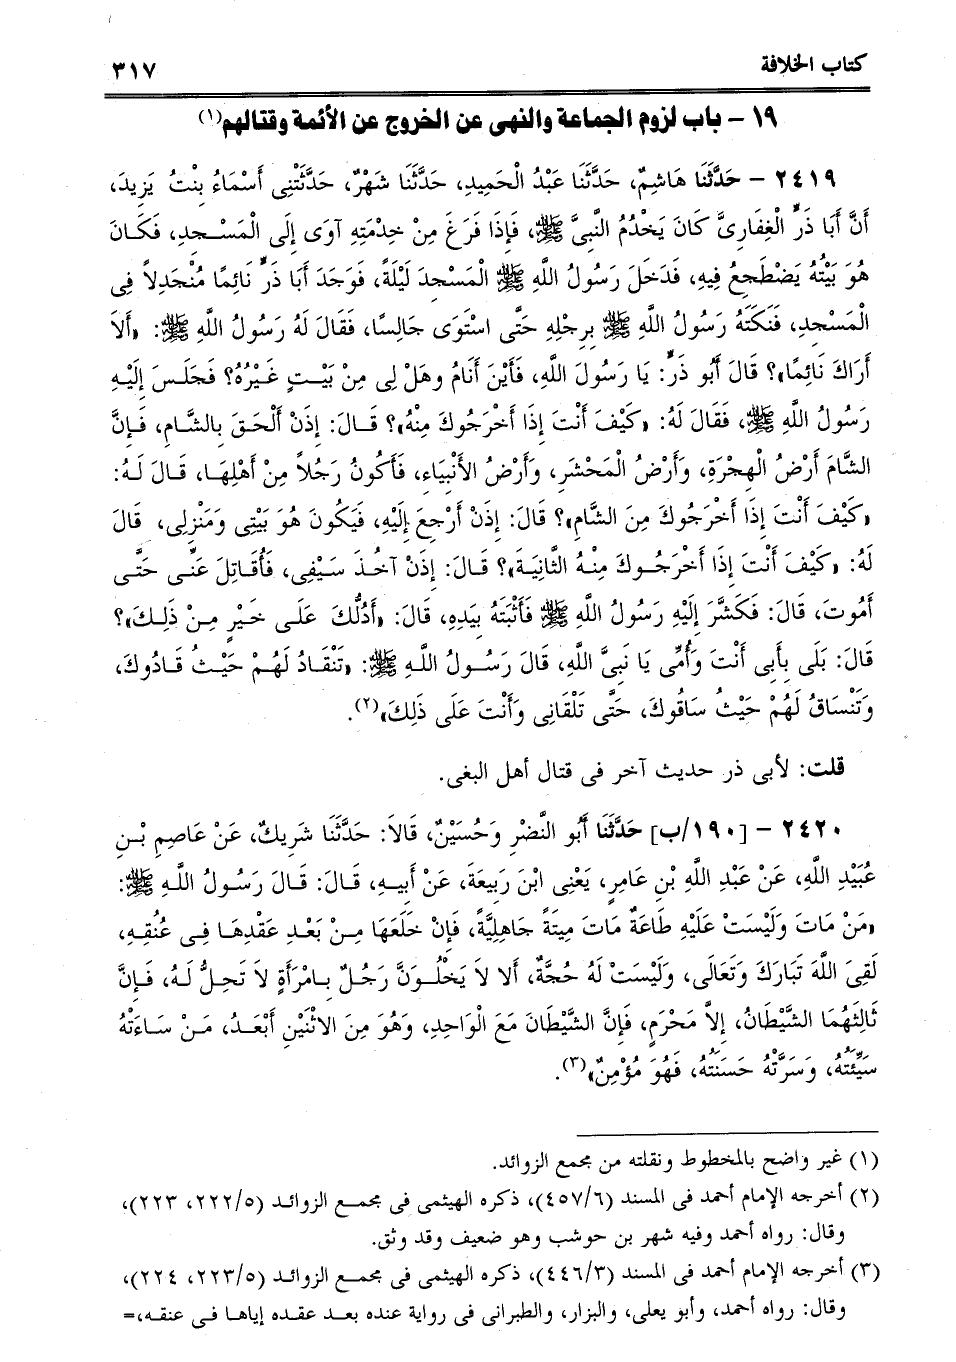 كتاب الخلافة ٣١٧
١٩ - باب لزوم الجماعة والنهى عن الخروج عن الأئمة وقتالهم(١)
٢٤١٩ - حَدَّثَنَا هَاشِمٌ، حَدَّثَنَا عَبْدُ الْحَمِيدِ، حَدَّثَنَا شَهْرٌ، حَدَّثَتْنِى أَسْمَاءُ بِنْتُ يَزِيدَ،
أَنَّ أَبَا ذَرٍّ الْغِفَارِىَّ كَانَ يَخْدُمُ النَّبِىَّ ﷺ، فَإِذَا فَرَغَ مِنْ خِدْمَتِهِ آوَى إِلَى الْمَسْجِدِ، فَكَانَ
هُوَ بَيْتُهُ يَضْطَجِعُ فِيهِ، فَدَخَلَ رَسُولُ اللَّهِ ﷺ الْمَسْجِدَ لَيْلَةً، فَوَجَدَ أَبَا ذَرٍّ نَائِمًا مُنْجَدِلاً فِى
الْمَسْجِدِ، فَنَكَتَهُ رَسُولُ اللَّهِ ﷺ بِرِجْلِهِ حَتَّى اسْتَوَى جَالِسًا، فَقَالَ لَهُ رَسُولُ اللَّهِ ﷺ: «أَلاَ
أَرَاكَ نَائِمًا»؟ قَالَ أَبُو ذَرٍّ: يَا رَسُولَ اللَّهِ، فَأَيْنَ أَنَامُ وَهَلْ لِى مِنْ بَيْتٍ غَيْرُهُ؟ فَجَلَسَ إِلَيْهِ
رَسُولُ اللَّهِ ﷺ، فَقَالَ لَهُ: «كَيْفَ أَنْتَ إِذَا أَخْرَجُوكَ مِنْهُ»؟ قَالَ: إِذَنْ أَلْحَقَ بِالشَّامِ، فَإِنَّ
الشَّامَ أَرْضُ الْهِجْرَةِ، وَأَرْضُ الْمَحْشَرِ، وَأَرْضُ الأَنْبِيَاءِ، فَأَكُونُ رَجُلاً مِنْ أَهْلِهَا، قَالَ لَهُ:
«كَيْفَ أَنْتَ إِذَا أَخْرَجُوكَ مِنَ الشَّامِ»؟ قَالَ: إِذَنْ أَرْجِعَ إِلَيْهِ، فَيَكُونَ هُوَ بَيْتِى وَمَنْزِلِى، قَالَ
لَهُ: «كَيْفَ أَنْتَ إِذَا أَخْرَجُوكَ مِنْهُ الثَّانِيَةَ»؟ قَالَ: إِذَنْ آخُذَ سَيْفِى، فَأُقَاتِلَ عَنِّى حَتَّى
أَمُوتَ، قَالَ: فَكَشَّرَ إِلَيْهِ رَسُولُ اللَّهِ ﷺ فَأَثْبَتَهُ بِيَدِهِ، قَالَ: «أَدُلُّكَ عَلَى خَيْرٍ مِنْ ذَلِكَ»؟
قَالَ: بَلَى بِأَبِى أَنْتَ وَأُمِّى يَا نَبِىَّ اللَّهِ، قَالَ رَسُولُ اللَّهِ ﷺ: «تَنْقَادُ لَهُمْ حَيْثُ قَادُوكَ،
وَتَنْسَاقُ لَهُمْ حَيْثُ سَاقُوكَ، حَتَّى تَلْقَانِى وَأَنْتَ عَلَى ذَلِكَ»(٢).
قلت: لأبى ذر حديث آخر فى قتال أهل البغى.
٢٤٢٠ - [١٩٠/ب] حَدَّثَنَا أَبُو النَّضْرِ وَحُسَيْنٌ، قَالاَ: حَدَّثَنَا شَرِيكٌ، عَنْ عَاصِمِ بْنِ
عُبَيْدِ اللَّهِ، عَنْ عَبْدِ اللَّهِ بْنِ عَامِرٍ، يَعْنِى ابْنَ رَبِيعَةَ، عَنْ أَبِيهِ، قَالَ: قَالَ رَسُولُ اللَّهِ ﷺ:
«مَنْ مَاتَ وَلَيْسَتْ عَلَيْهِ طَاعَةٌ مَاتَ مِيتَةً جَاهِلِيَّةً، فَإِنْ خَلَعَهَا مِنْ بَعْدِ عَقْدِهَا فِى عُنُقِهِ،
لَقِىَ اللَّهَ تَبَارَكَ وَتَعَالَى، وَلَيْسَتْ لَهُ حُجَّةٌ، أَلا لاَ يَخْلُوَنَّ رَجُلٌ بِامْرَأَةٍ لاَ تَحِلُّ لَهُ، فَإِنَّ
ثَالِثَهُمَا الشَّيْطَانُ، إِلاَّ مَحْرَمٍ، فَإِنَّ الشَّيْطَانَ مَعَ الْوَاحِدِ، وَهُوَ مِنَ الاثْنَيْنِ أَبْعَدُ، مَنْ سَاءَتْهُ
سَيِّئَتُهُ، وَسَرَّتْهُ حَسَنَتُهُ، فَهُوَ مُؤْمِنٌ»(٣).
(١) غير واضح بالمخطوط ونقلته من مجمع الزوائد.
(٢) أخرجه الإمام أحمد فى المسند (٤٥٧/٦)، ذكره الهيثمى فى مجمع الزوائد (٢٢٢/٥، ٢٢٣)،
وقال: رواه أحمد وفيه شهر بن حوشب وهو ضعيف وقد وثق.
(٣) أخرجه الإمام أحمد فى المسند (٤٤٦/٣)، ذكره الهيثمى فى مجمع الزوائد (٢٢٣/٥، ٢٢٤)،
وقال: رواه أحمد، وأبو يعلى، والبزار، والطبرانى فى رواية عنده بعد عقده إياها فى عنقه،=